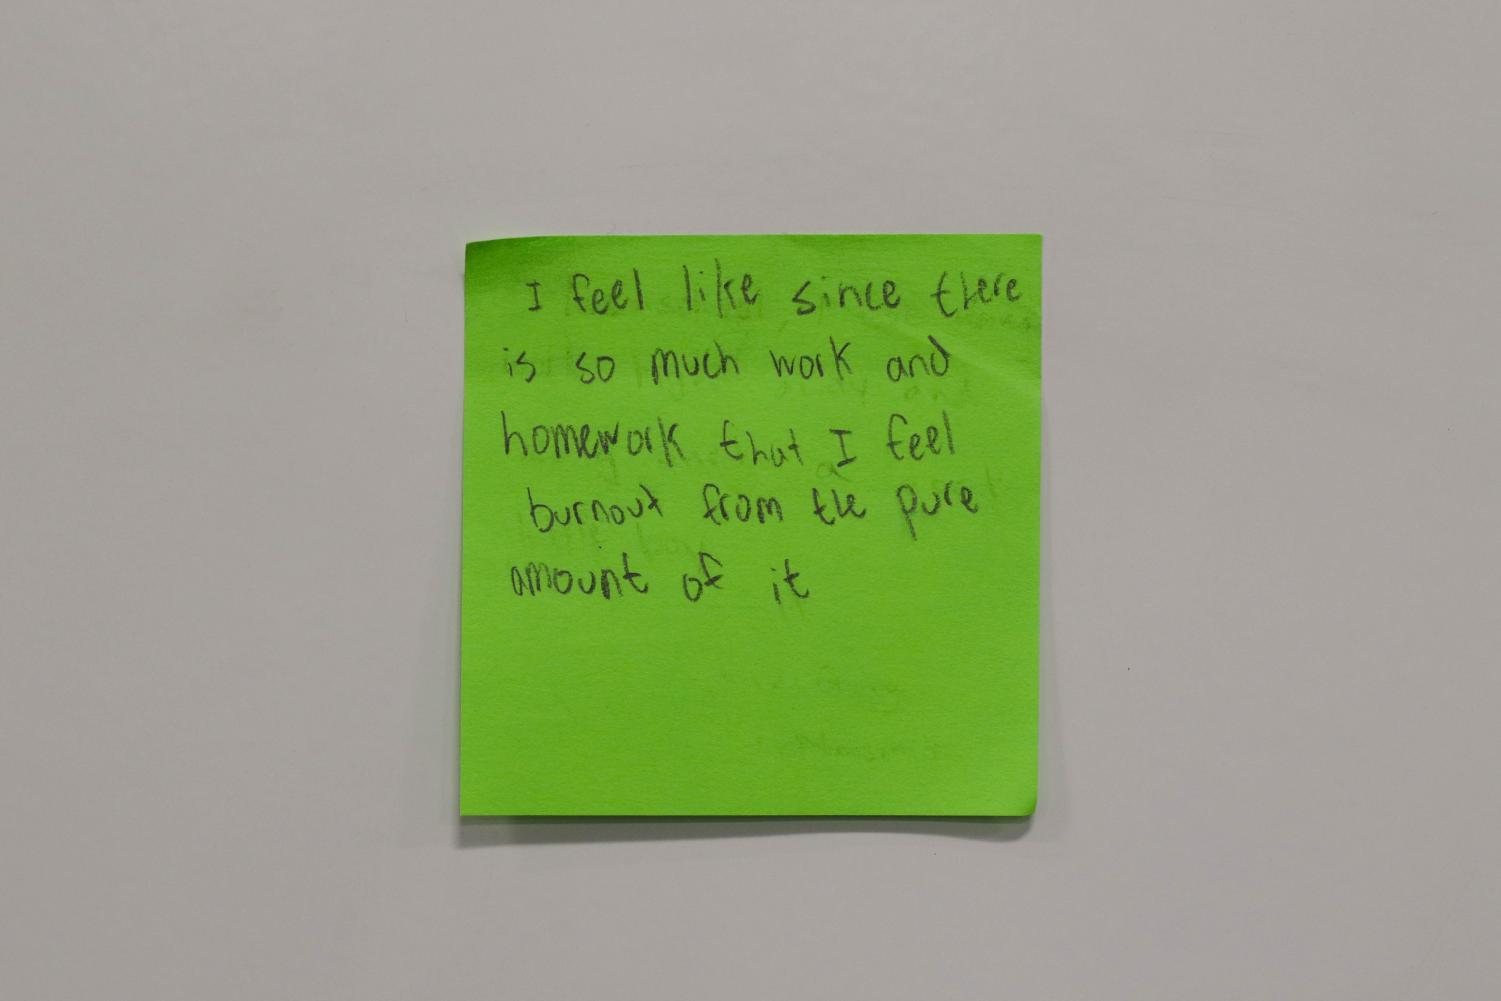 I feel like since there
is so much work and
homework that I feel
burnout from the pure
amount of it